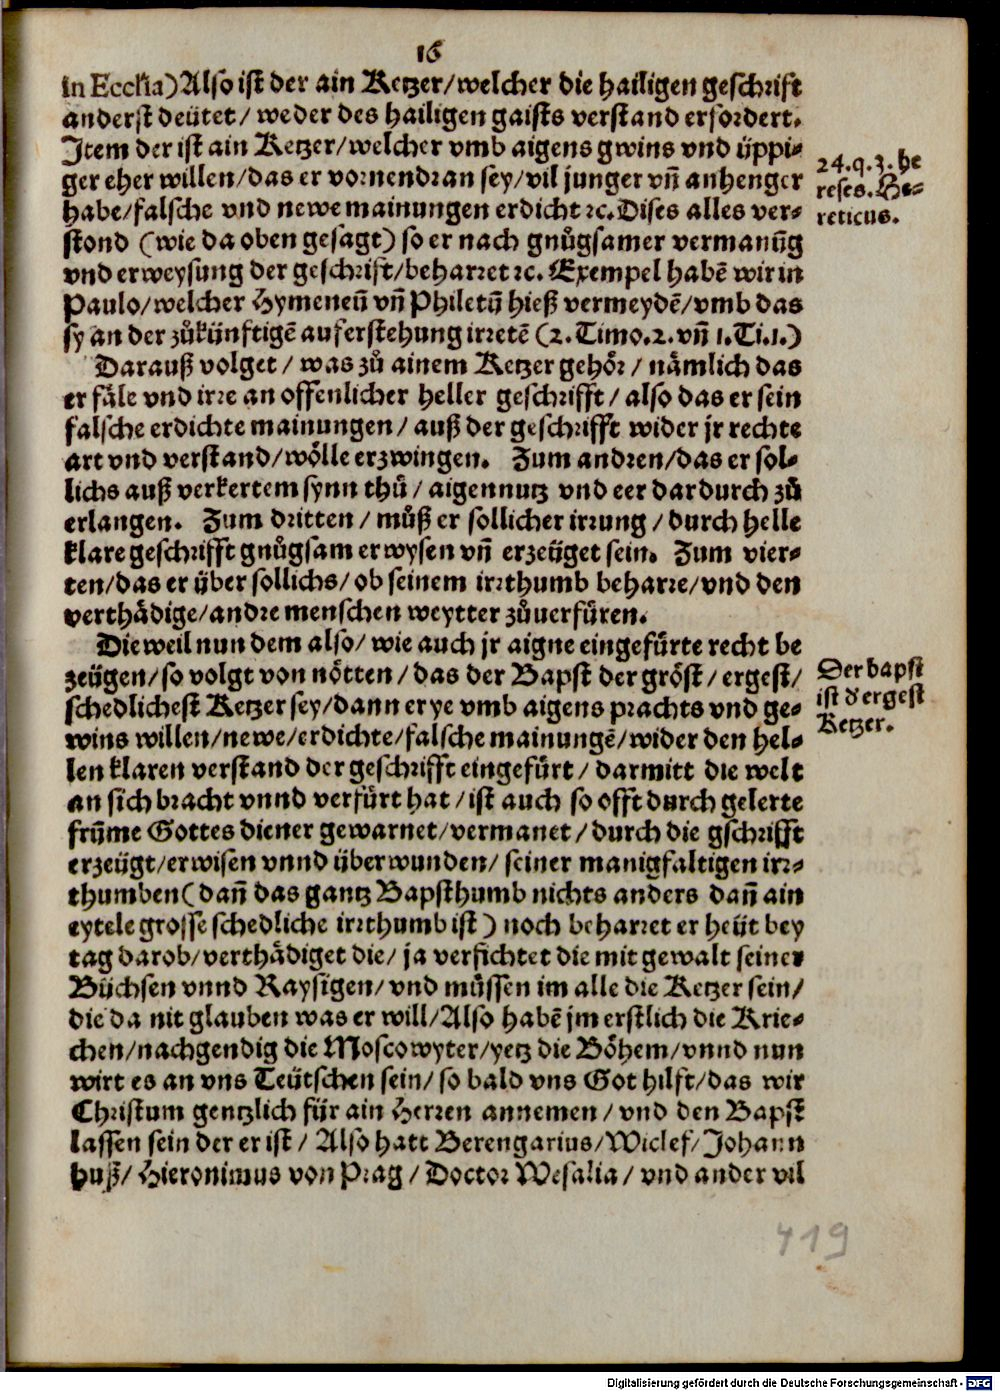 16
in Ecclsia) Also ist der ain Ketzer/welcher die hailigen geschrift
anderst deütet/ weder des hailigen gaists verstand erfordert.
Item der ist ain Ketzer/welcher vmb aigens gwins vnd üppi-
ger eher willen/das er vornendran sey/vil junger vñ anhenger
habe/falsche vnd newe mainungen erdicht ꝛc. Dises alles ver-
stond (wie da oben gesagt) so er nach gnůgsamer vermanũg
vnd erweysung der geschrift/beharret ꝛc. Exempel habẽ wir in
Paulo/welcher Hymeneũ vñ Philetũ hieß vermeydẽ/vmb das
sy an der zůkünftigẽ auferstehung irretẽ (2. Timo. 2. vñ 1. Ti. 1.)
Darauß volget/ was zů ainem Ketzer gehör/ nämlich das
er fäle vnd irre an offenlicher heller geschrifft/ also das er sein
falsche erdichte mainungen/ auß der geschrifft wider jr rechte
art vnd verstand/wölle erzwingen. Zum andren/das er sol-
lichs auß verkertem synn thů/ aigennutz vnd eer dardurch zů
erlangen. Zum dritten/ můß er sollicher irrung/durch helle
klare geschrifft gnůgsam erwysen vñ erzeüget sein. Zum vier-
ten/das er über sollichs/ ob seinem irrthumb beharre/vnd den
verthädige/andre menschen weytter zůuerfüren.
Die weil nun dem also/ wie auch jr aigne eingefürte recht be
zeügen/so volgt von nötten/das der Bapst der gröst/ergest/
schedlichest Ketzer sey/dann er ye vmb aigens prachts vnd ge-
wins willen/newe/erdichte/falsche mainungẽ/wider den hel-
len klaren verstand der geschrifft eingefürt/ darmitt die welt
an sich bracht vnnd verfürt hat/ist auch so offt durch gelerte
frũme Gottes diener gewarnet/vermanet/durch die gschrifft
erzeügt/erwisen vnnd überwunden/ seiner manigfaltigen irr-
thumben (dañ das gantz Bapsthumb nichts anders dañ ain
eytele grosse schedliche irrthumb ist) noch beharret er heüt bey
tag darob/verthädiget die/ ja verfichtet die mit gewalt seiner
Büchsen vnnd Raysigen/vnd müssen im alle die Ketzer sein/
die da nit glauben was er will/Also habẽ jm erstlich die Krie-
chen/nachgendig die Moscowyter/yetz die Böhem/vnnd nun
wirt es an vns Teütschen sein/ so bald vns Got hilft/das wir
Christum gentzlich für ain Herren annemen/vnd den Bapst
lassen sein der er ist/ Also hatt Berengarius/Wiclef/Johann
Huß/ Hieronimus von Prag/Doctor Wesalia/ vnd ander vil
24. q. 3. he
reses. He-
reticus.
Der bapst
ist d' ergest
Ketzer.
419
Digitalisierung gefördert durch die Deutsche Forschungsgemeinschaft - DFG